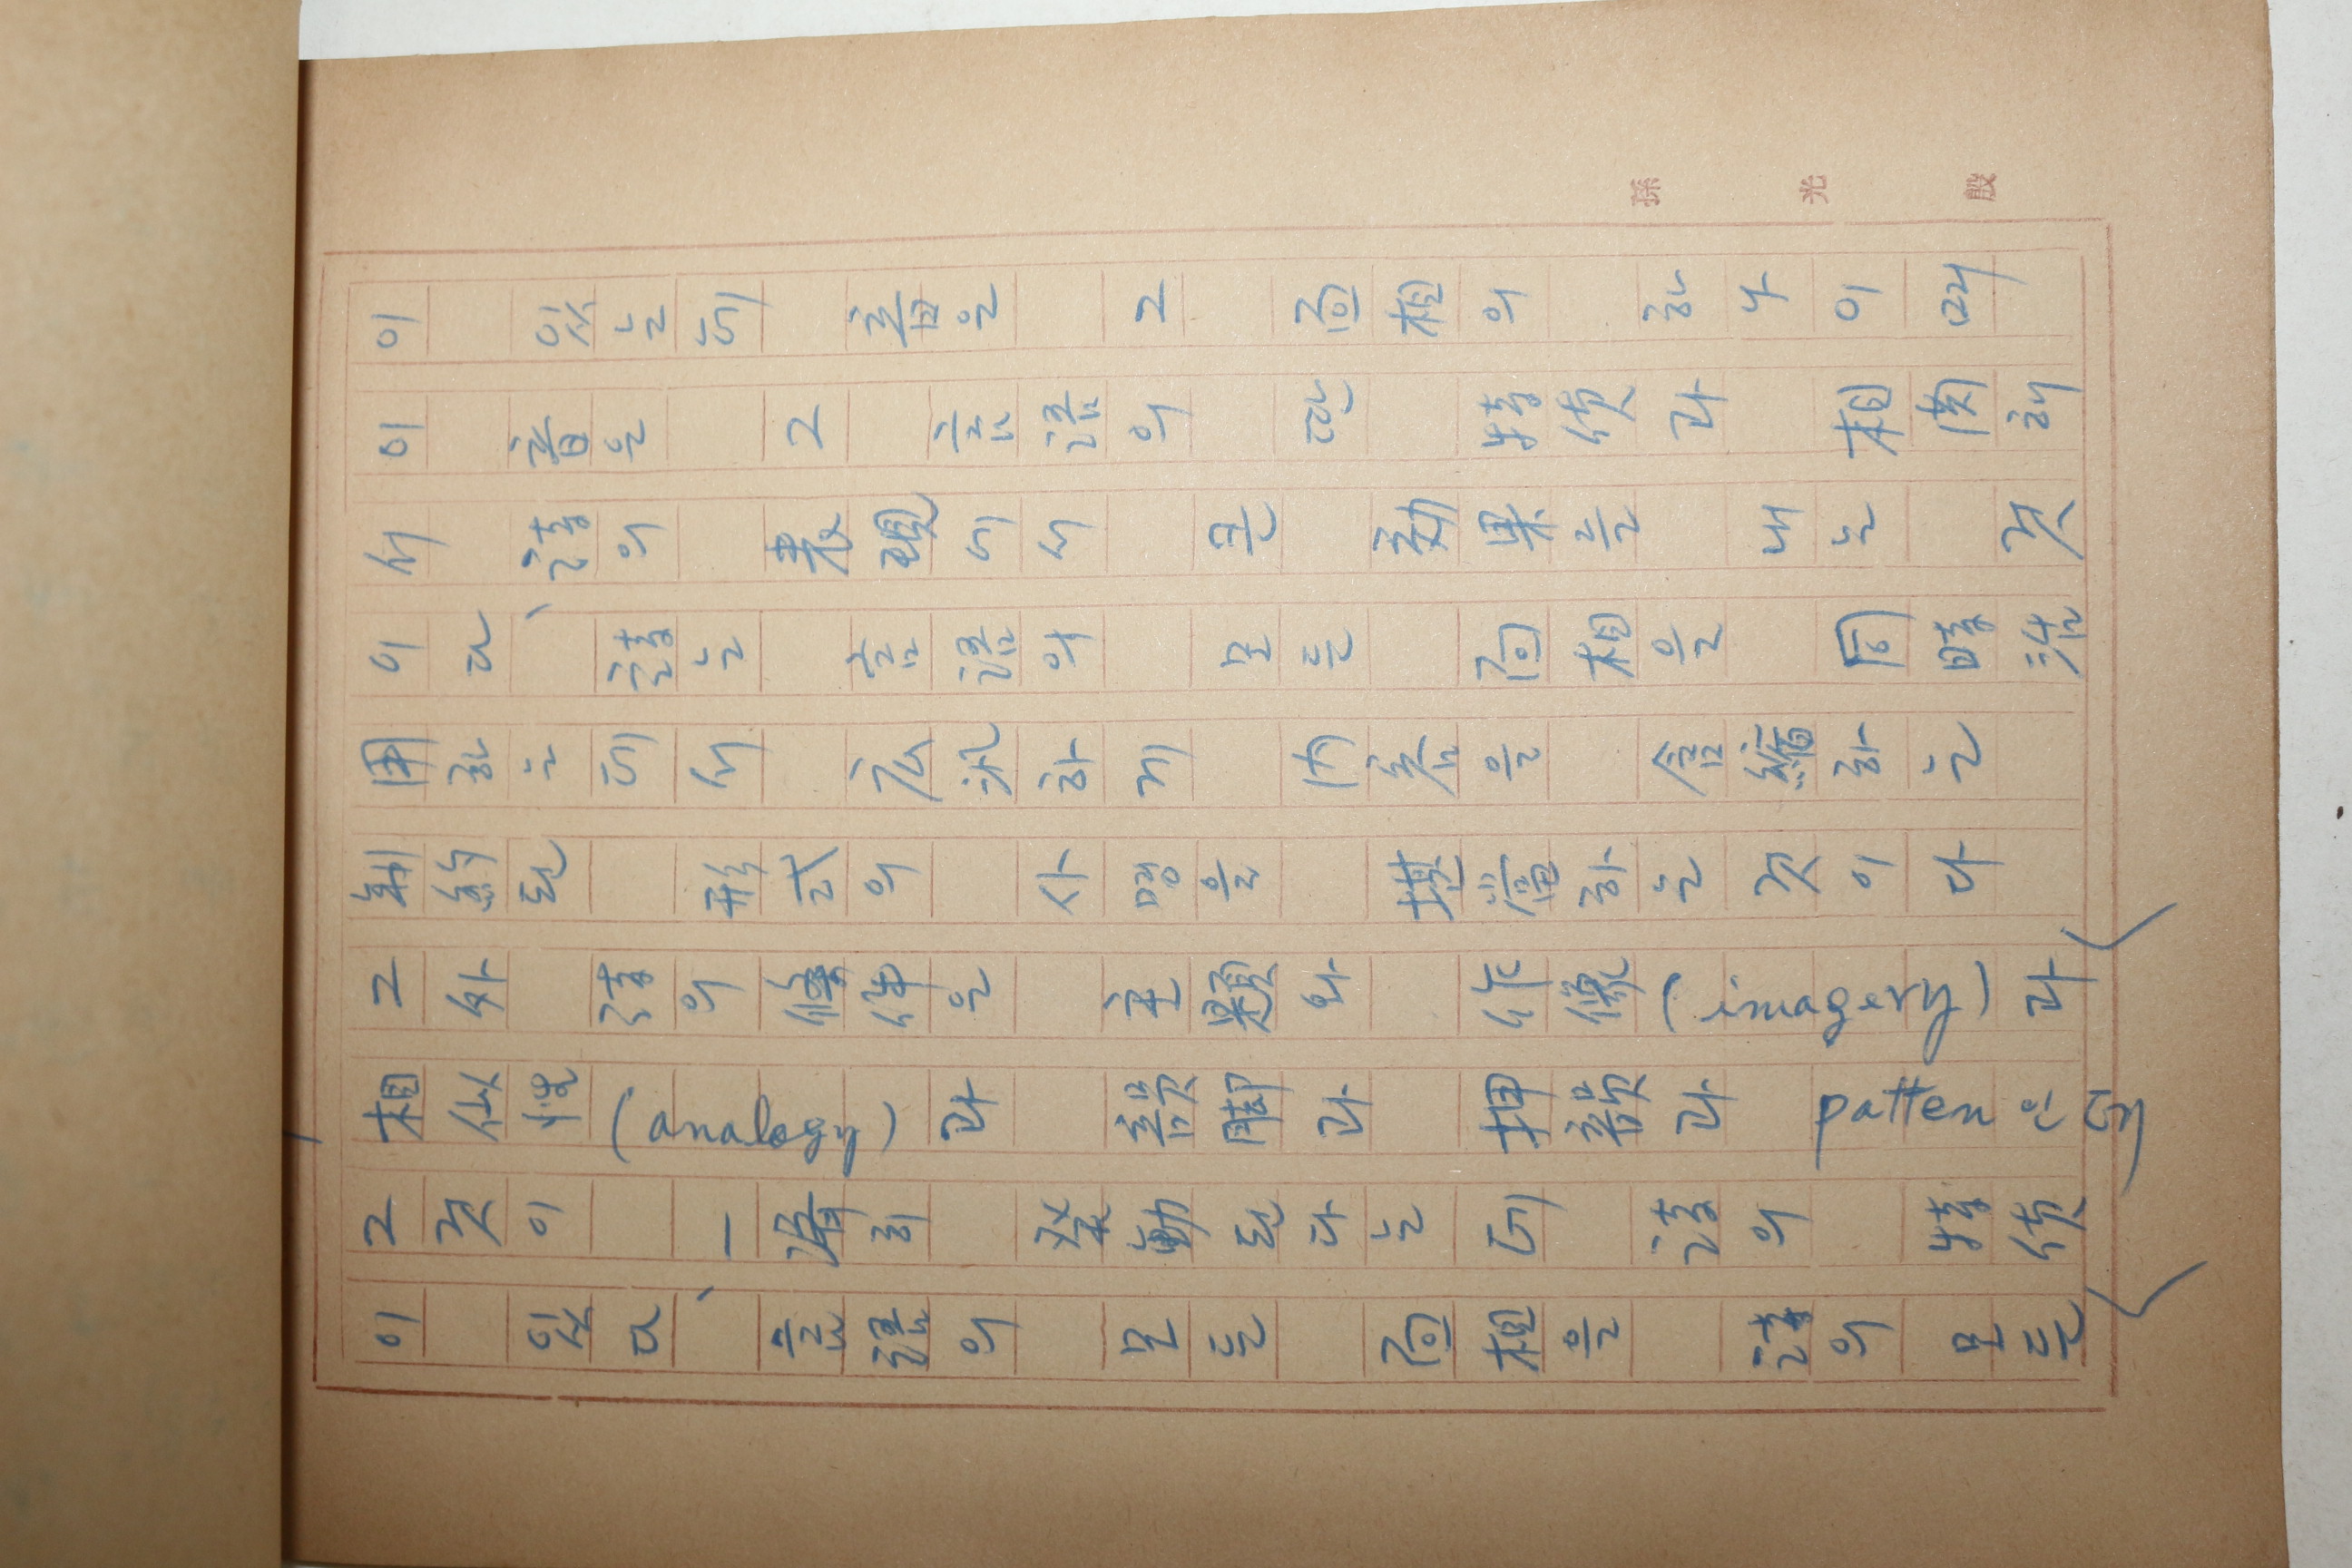 이 있는데 音은 그 面相의 하나이며
이 音은 그 言語의 딴 特徴과 相関해
서 詩의 表現에서 큰 効果를 내는 것
이다、詩는 言語의 모든 面相을 同時活
用하는데서 広汎하게 內容을 含縮하는
制約된 形式의 사명을 堪當하는 것이다
그外 詩의 條件은 主題와 作像(imagery)과
相似性(analogy)과 韻脚과 押韻과 pattern 等
그것이 一齊히 発動된다는데 詩의 特徴
이 있다、言語의 모든 面相을 詩의 모든
孫光殷